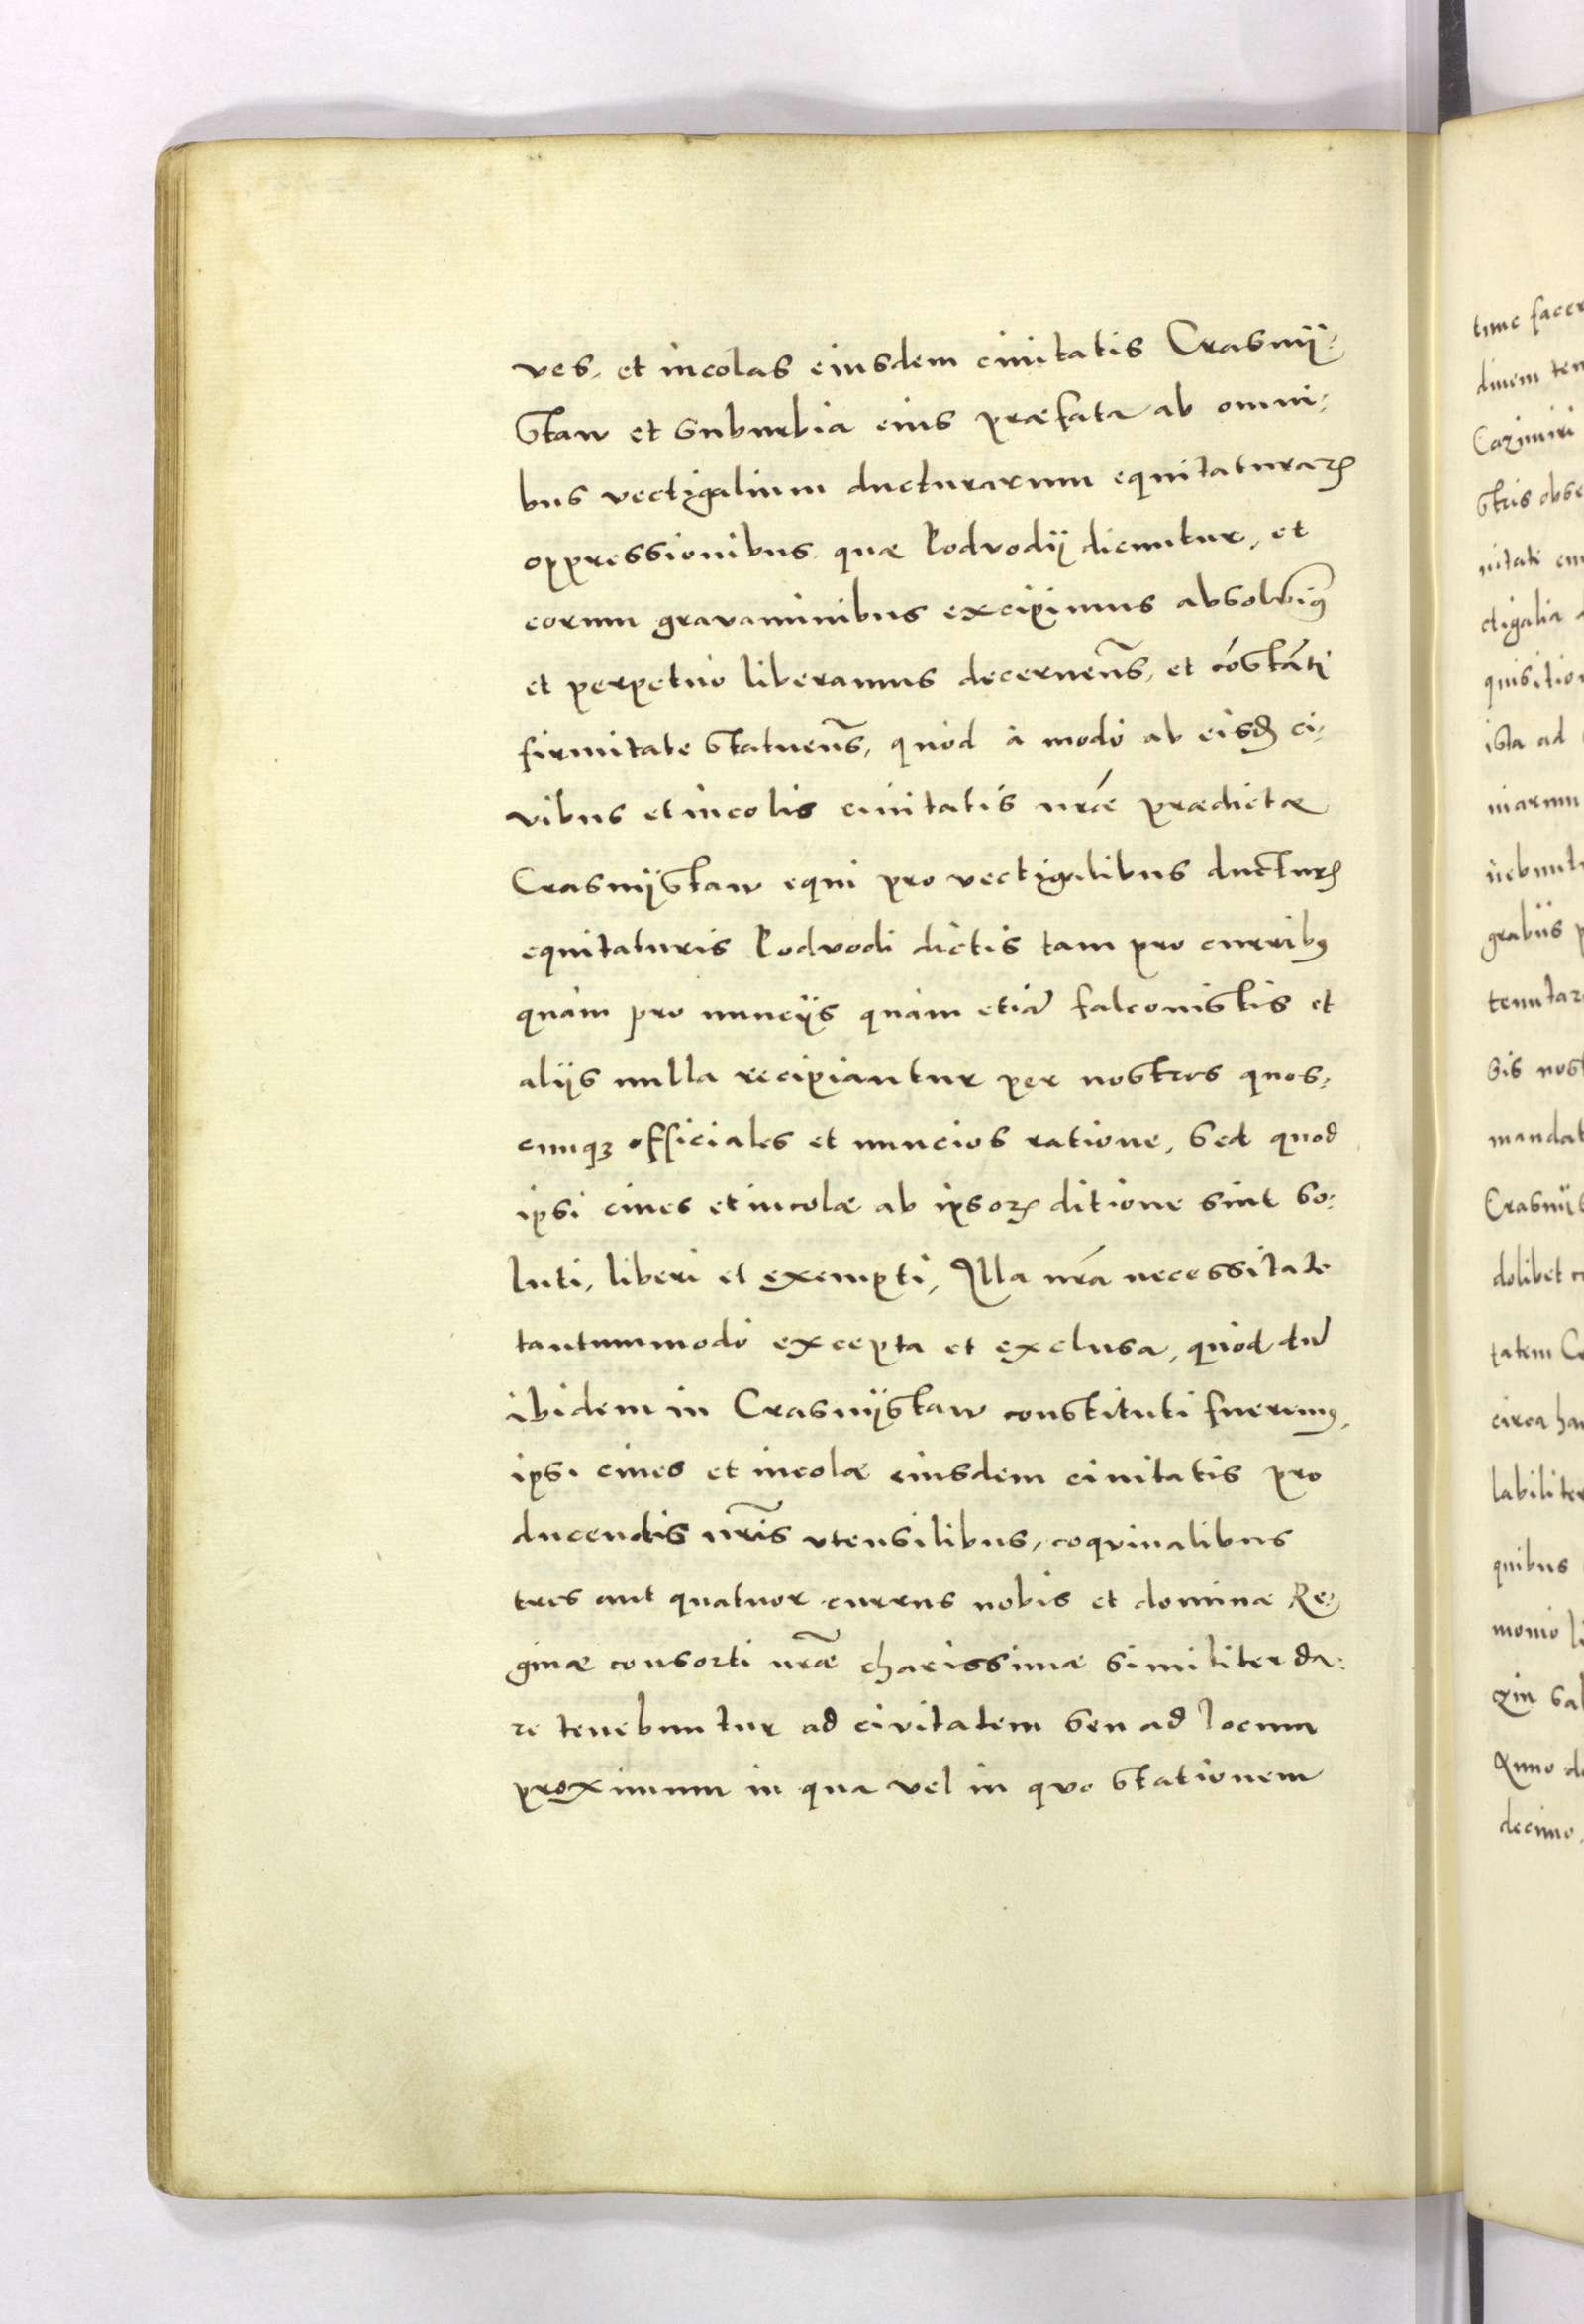 ves, et incolas eiusdem ciuitatis Crasnÿ⸗
staw et suburbia eius præfata ab omni⸗
bus vectigalium ducturarum equitaturaꝝ
oppressionibus quæ Podvodÿ dicuntur, et
eorum gravaminibus excipimus absolvimꝰ
et perpetuò liberamus decernen̄s, et cōstāti
firmitate statuen̄s, quòd à modò ab eisd ci⸗
vibus et incolis ciuitatis nr̄æ prædictæ
Crasnÿstaw equi pro vectigalibus ductur
equitaturis Podvodi dictis tam pro curribꝰ
quàm pro nuncijs quàm etiā falconistis et
alijs nulla recipiantur per nostros quos⸗
cunqꝫ officiales et nuncios ratione, sed quod
ipsi ciues et incolæ ab ipsoꝝ ditione sint so⸗
luti, liberi et exempti, Illa nr̄a necessitate
tantummodò excepta et exclusa, quòd dū
ibidem in Crasnÿstaw constituti fuerimꝰ,
ipsi ciues et incolæ eiusdem ciuitatis pro
ducendis nr̄is vtensilibus, coquinalibus
tres aut quatuor currus nobis et dominæ Re⸗
ginæ consorti nr̄æ charissimæ similiter da⸗
re tenebuntur ad civitatem seu ad locum
proximum in qua vel in quo stationem
tunc facer
dinem ten
Cazimiri
stris obse
uitati
ctigalia
quisitio
ista ad
niarum
grabiis
tenutar
sis nost
mandat
Crasnÿs
dolibet
tatem
circa ha
labiliter
quibus
monio
Anno do
decimo,